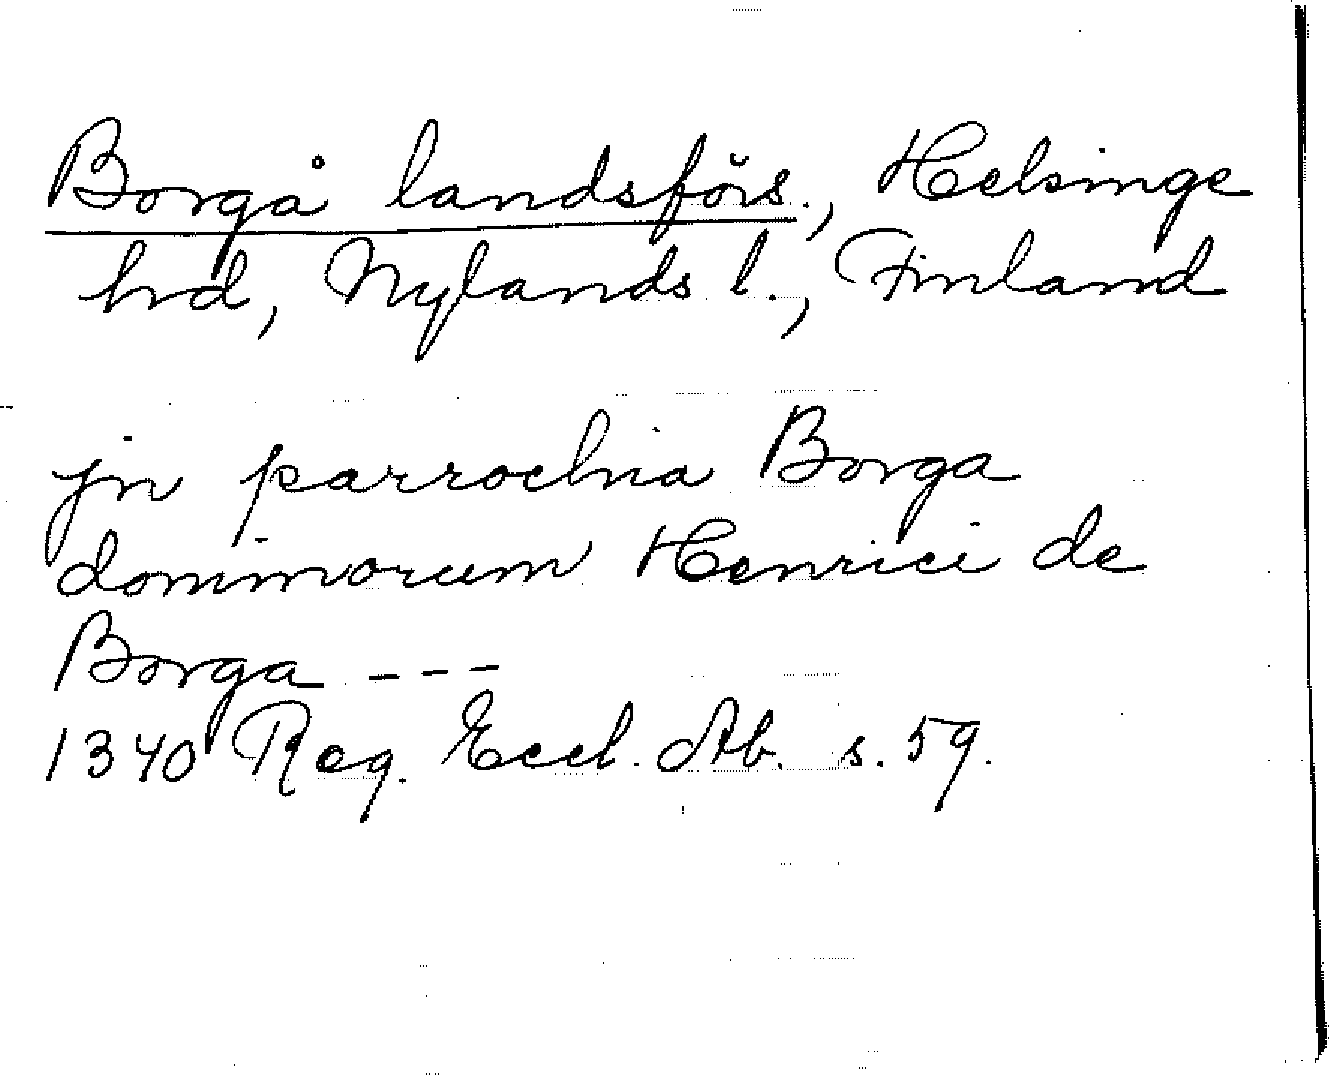 Borgå landsförs., Helsinge
hrd, Nylands l., Finland
jn parrochia Borga
dominorum Henrici de
Borga ---
1340 Reg. Eccl. Ab. s. 59.